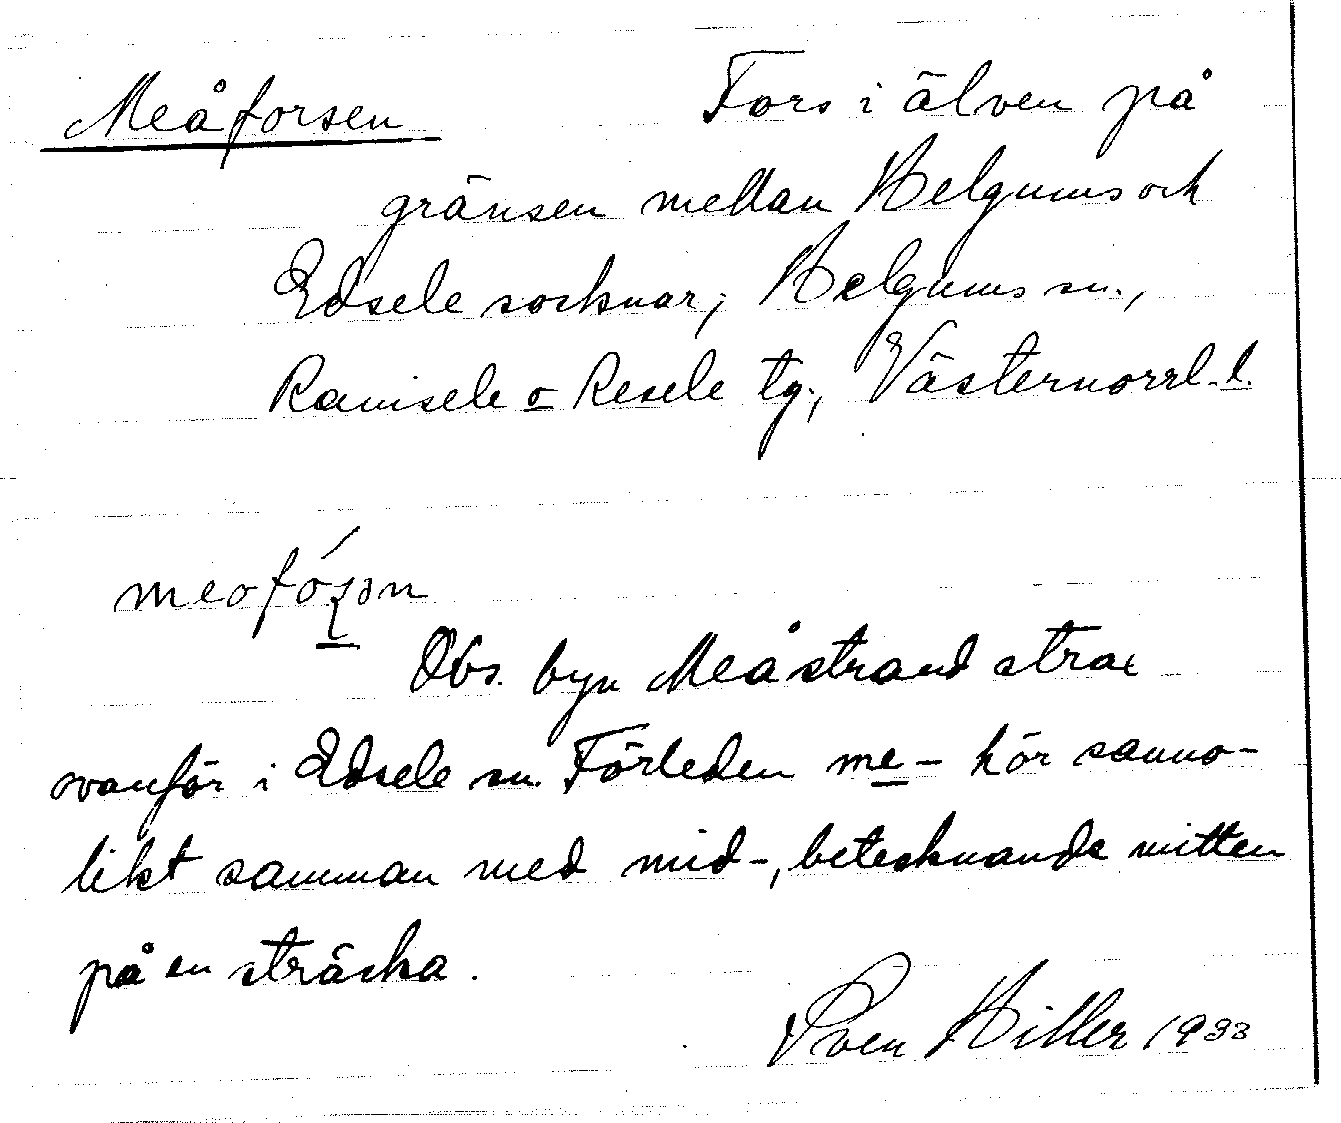 Meåforsen Fors i älven på
gränsen mellan Helgums och
Edsele socknar; Helgums sn.,
Ramsele o Resele tg., Västernorrl. l.
Obs. byn Meåstrand strax
ovanför i Edsele sn. Förleden me- hör sanno-
likt samman med mid-, betecknande mitten
på en sträcka.
Sven Hiller 1933